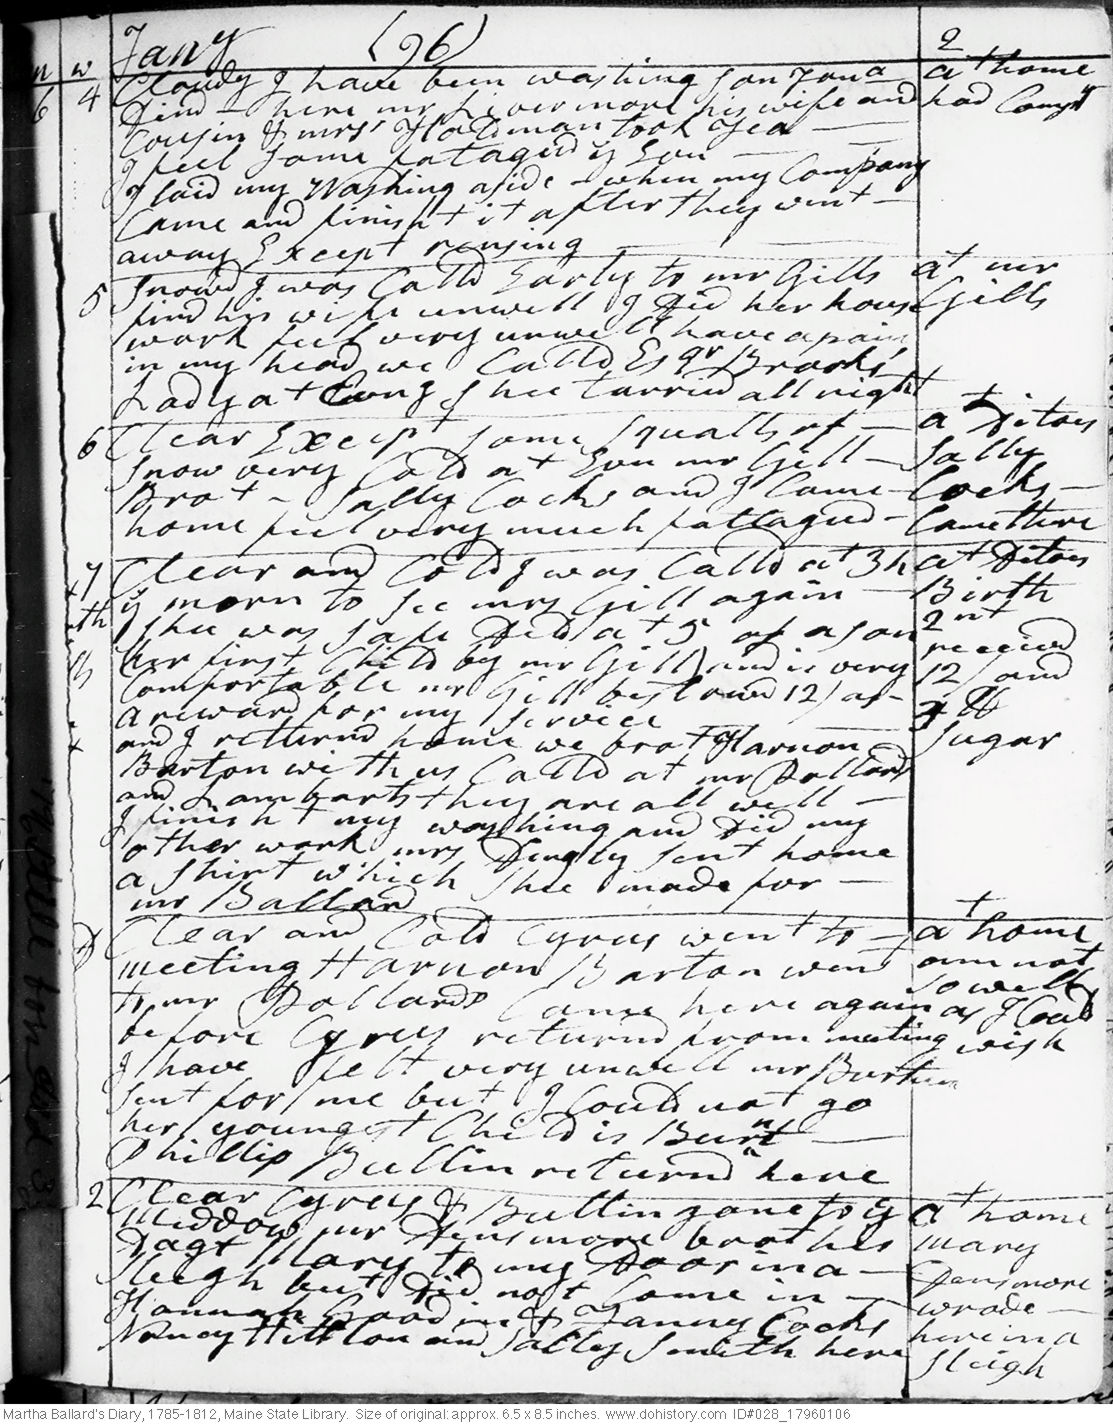 Jany (96) 2
m w
6 4 Cloudy I have been washing son Jona at home
Dind here mr Livermore his wife and had Compy
Cousin & mrs Holdman took Tea
I feel some fatagud ys Evn
I laid my Washing aside when my Company
Came and finisht it after they went
away Except rensing
5 Snowd I was Calld Early to mr Gills at mr
find his wife unwell I Did her house Gills
work feel very unwell have a pain
in my head we Calld Esqr Brooks
Lady at Evng shee tarried all night
6 Clear Except some squalls of at Ditoes
snow very Cold at Evn mr Gill Sally
Brot Sally Cocks and I Came Cocks
home feel very much fattagud Came there
7 Clear and Cold I was Calld at 3 h at Ditoes
ys morn to see mrs Gill again Birth
th shee was safe Dld at 5 of a son 2nt
her first Child by mr Gill and is very received
Comfortable mr Gill bestowd 12/ as 12/ and
a reward for my service lb
and I returnd home we brot Harnon sugar
Barton with us Calld at mr Pollards
and Lambarts they are all well
I finisht my washing and Did my
other work mrs Dingly sent home
a shirt which shee made for
mr Ballard
D Clear and Cold Cyrus went to at home
meeting Harnon Barton went am not
to mr Pollards Came here again so well
before Cyrus returnd from meeting as I Could
I have felt very unwell mr Burtun wish
sent for me but I Could not go
her youngest Child is Burnt
Phillip Bullin returnd here
2 Clear Cyrus & Bullin gone to ys at home
middow mr Densmore brot his mary
Dagt Mary to my Door in a Densmore
sleigh but Did not Come in wrode
Hannah Goodin & Fanny Cocks here in a
Nancy Hillton and Sally Smith here sleigh
Martha Ballard's Diary, 1785-1812, Maine State Library. Size of original: approx. 6.5 x 8.5 inches. www.dohistory.com ID#028_17960106